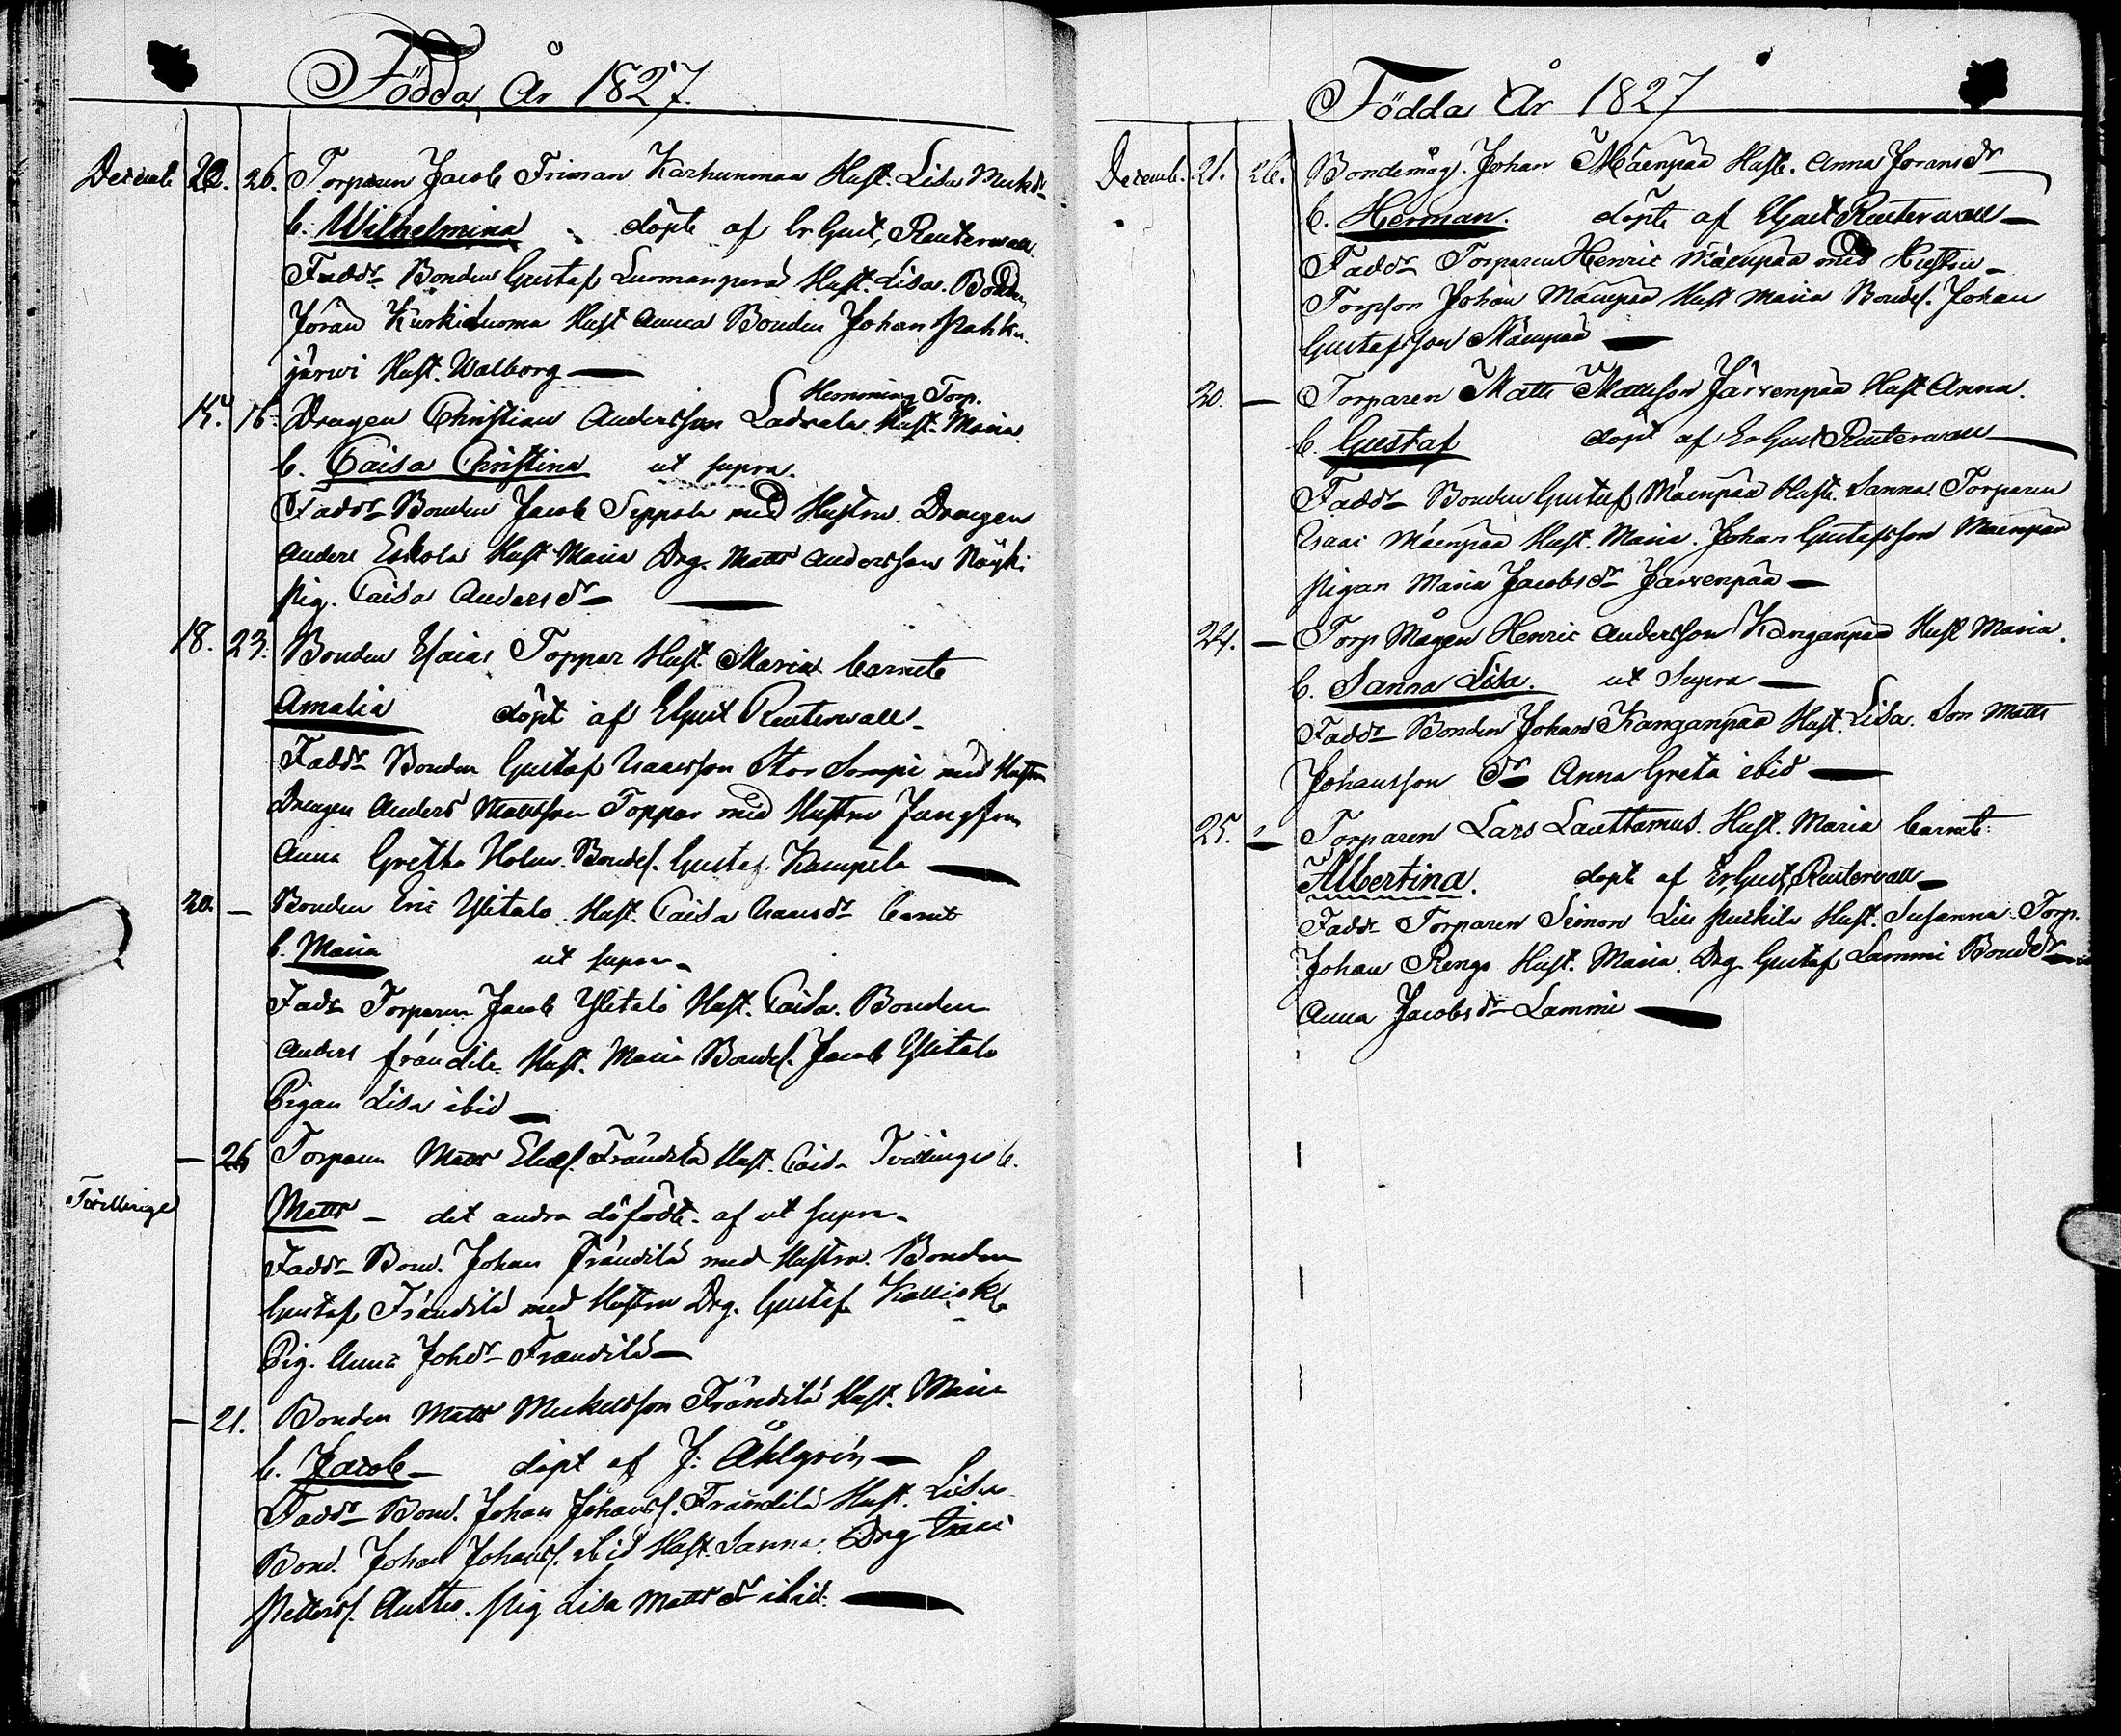 Födda, År 1827.
Decemb 22. 26. Torparen Jacob Friman Karhunmaa Hust. Lisa Mickdr
b. Wilhelmina döpt af Er Gust, Reuterwall
Faddr Bonden Gustaf Luomanperä Hust. Lisa. Bonden
Jöran Kurkiluoma Hust Anna Bonden Johan Pahka
järwi Hust. Walborg —
Hemming Torp.
15. 16. Drengen Christian Andersson Ladvala Hust. Maria
b. Caisa Christina ut supra.
Faddr Bonden Jacob Seppele med Hustru. Drengen
Anders Eskola Hust Maria Drg. Matts Andersson
Pig. Caisa Andersdr —
18. 23. Bonden Isaias Toppar Hust. Maria barnets
Amalia döpt af E Gust Reuterwall
Faddr Bonden Gustaf Isaacsson Stor Sompi med Hustru
Drengen Anders Mattsson Toppar med Hustru Jungfru
Anna Gretha Holm. Bondes. Gustaf Kampela —
20. — Bonden Eric Ylitalo Hust. Caisa Isaacsdr barnet
b. Maria ut supra
Fadr Torparen Jacob Ylitalo Hust. Caisa. Bonden
Anders Frändilä Hust. Maria Bondes. Jacob Ylitalo
Pigan Lisa ibid —
— 26 Torparen Matts Elias. Frändilä Hust. Caisa Tvillingar b.
Tvillingar
Matts — det andra döfödt. af ut supra
Faddr Bond. Johan Frändilä med Hustru. Bonden
Gustaf Frändilä med Hustru Drg. Gustaf
Pig. Anna Johdr Frändilä —
— 21. Bonden Matts Mickelsson Frändilä Hust. Maria
b. Jacob — döpt af J: Åhlgrén —
Faddr Bond. Johan Johanss. Frändilä Hust. Lisa
Bond. Johan Johanss. ibid Hust. Sanna. Drg Isaac
Petterss. Autio. Pig Lisa Mattsdr ibid. —
Födda År 1827
Decemb. 21. 26. Bondemåg. Johan Mäenpää Hust. Anna Joransdr
b. Herman. döpt af E Gust Reuterwall —
Faddr Torparen Henric Mäenpää med Hustru —
Torpson Johan Mäenpää Hust Maria Bondes. Johan
Gustafsson Mäenpää —
20. — Torparen Matts Mattsson Järvenpää Hust Anna.
b. Gustaf döpt af Er Gust Reuterwall —
Faddr Bonden Gustaf Mäenpää Hust. Sanna. Torparen
Isaac Mäenpää Hust. Maria. Johan Gustafsson Mäenpää
Pigan Maria Jacobsdr Järvenpää —
24. — Torp Mågen Henric Andersson Kanganpää Hust Maria.
b. Sanna Lisa. ut Supra —
Faddr Bonden Johan Kanganpää Hust. Lisa. Son Matts
Johansson dr Anna Greta ibid —
25. — Torparen Lars Lauttamus. Hust. Maria barnet:
Albertina. döpt af Er Gust, Reuterwall —
Faddr Torparen Simon Hust. Susanna. Torp.
Johan Rengo Hust. Maria. Drg. Gustaf Lammi Bonddr
Anna Jacobsdr Lammi —